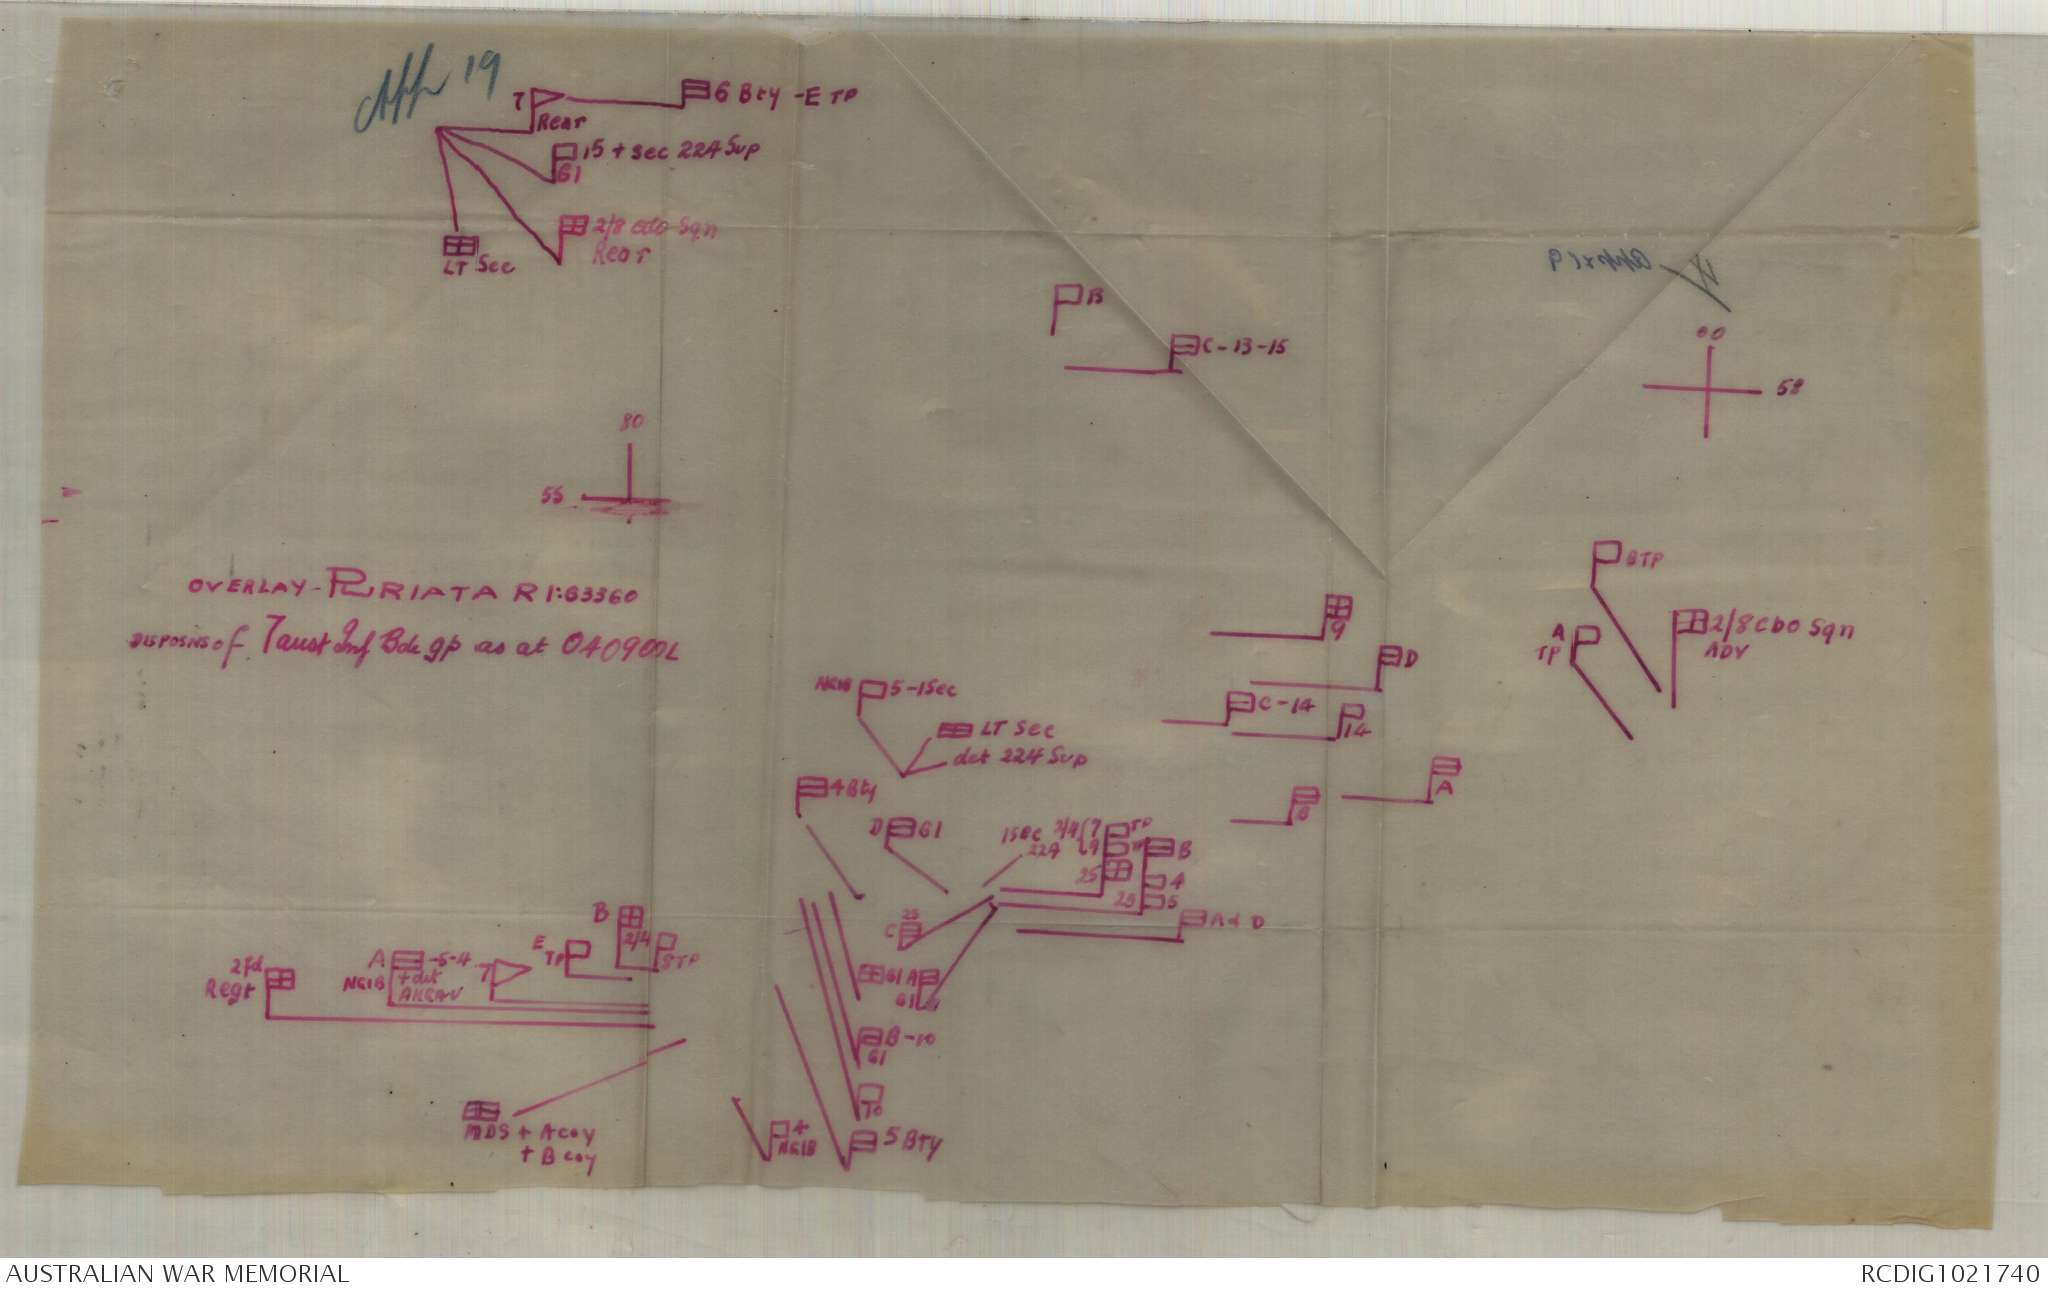 App 19
7
Rear
6 Bty - E TP
15 + Sec 224 Sup
61
2/8 Cdo Sqn
Rear
LT Sec
B
C - 13 - 15
Appx 19
00
58
80
55
OVERLAY - PURIATA R 1:63360
DISPOSNS of 7 aust Inf Bde gp as at 040900L
BTP
A
TP
2/8 Cbo Sqn
ADV
9
D
C - 14
14
A
B
NGIB
5 - 1 Sec
LT Sec
det 224 Sup
4 Bty
D
61
1 Sec
224
2/4
7
9
TP
TP
25
B
4
25
5
A & D
25
C
61
A
61
B - 10
61
10
5 Bty
4
NGIB
B
2/4
BTP
E
TP
7
A
NGIB
-5-4
+ det
ANGAU
2 Fd
Regt
MDS + A coy
+ B coy
AUSTRALIAN WAR MEMORIAL
RCDIG1021740